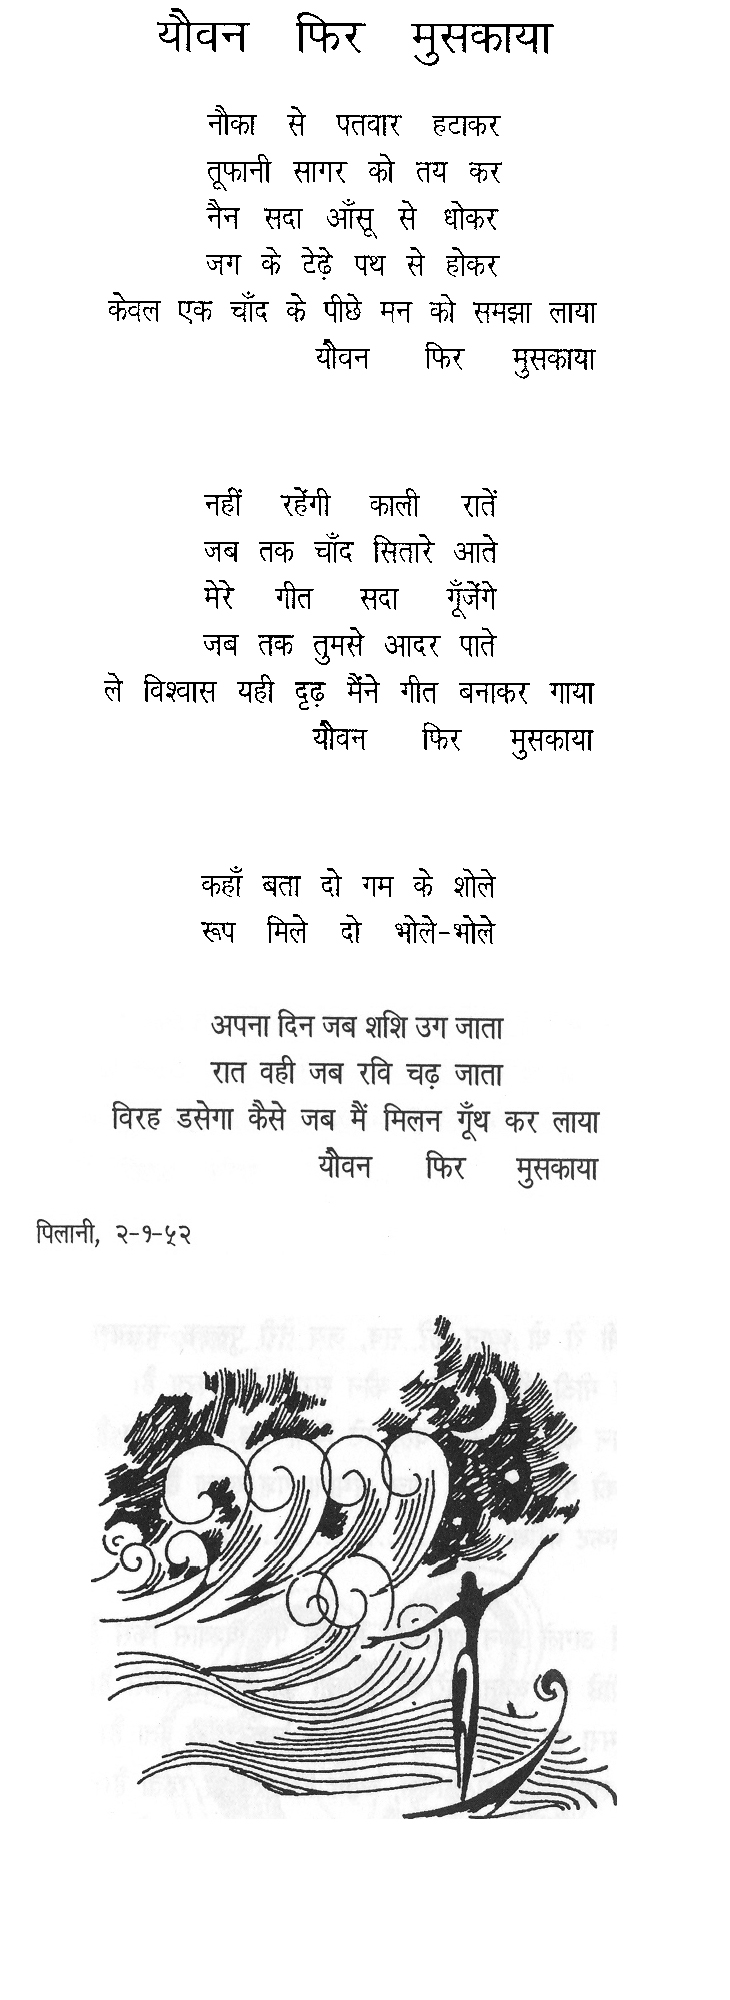 यौवन फिर मुसकाया
नौका से पतवार हटाकर
तूफानी सागर को तय कर
नैन सदा आँसू से धोकर
जग के टेढ़े पथ से होकर
केवल एक चाँद के पीछे मन को समझा लाया
यौवन फिर मुसकाया
नहीं रहेंगी काली रातें
जब तक चाँद सितारे आते
मेरे गीत सदा गूँजेंगे
जब तक तुमसे आदर पाते
ले विश्वास यही दृढ़ मैंने गीत बनाकर गाया
यौवन फिर मुसकाया
कहाँ बता दो गम के शोले
रूप मिले दो भोले-भोले
अपना दिन जब शशि उग जाता
रात वही जब रवि चढ़ जाता
विरह डसेगा कैसे जब मैं मिलन गूँथ कर लाया
यौवन फिर मुसकाया
पिलानी, २-१-५२